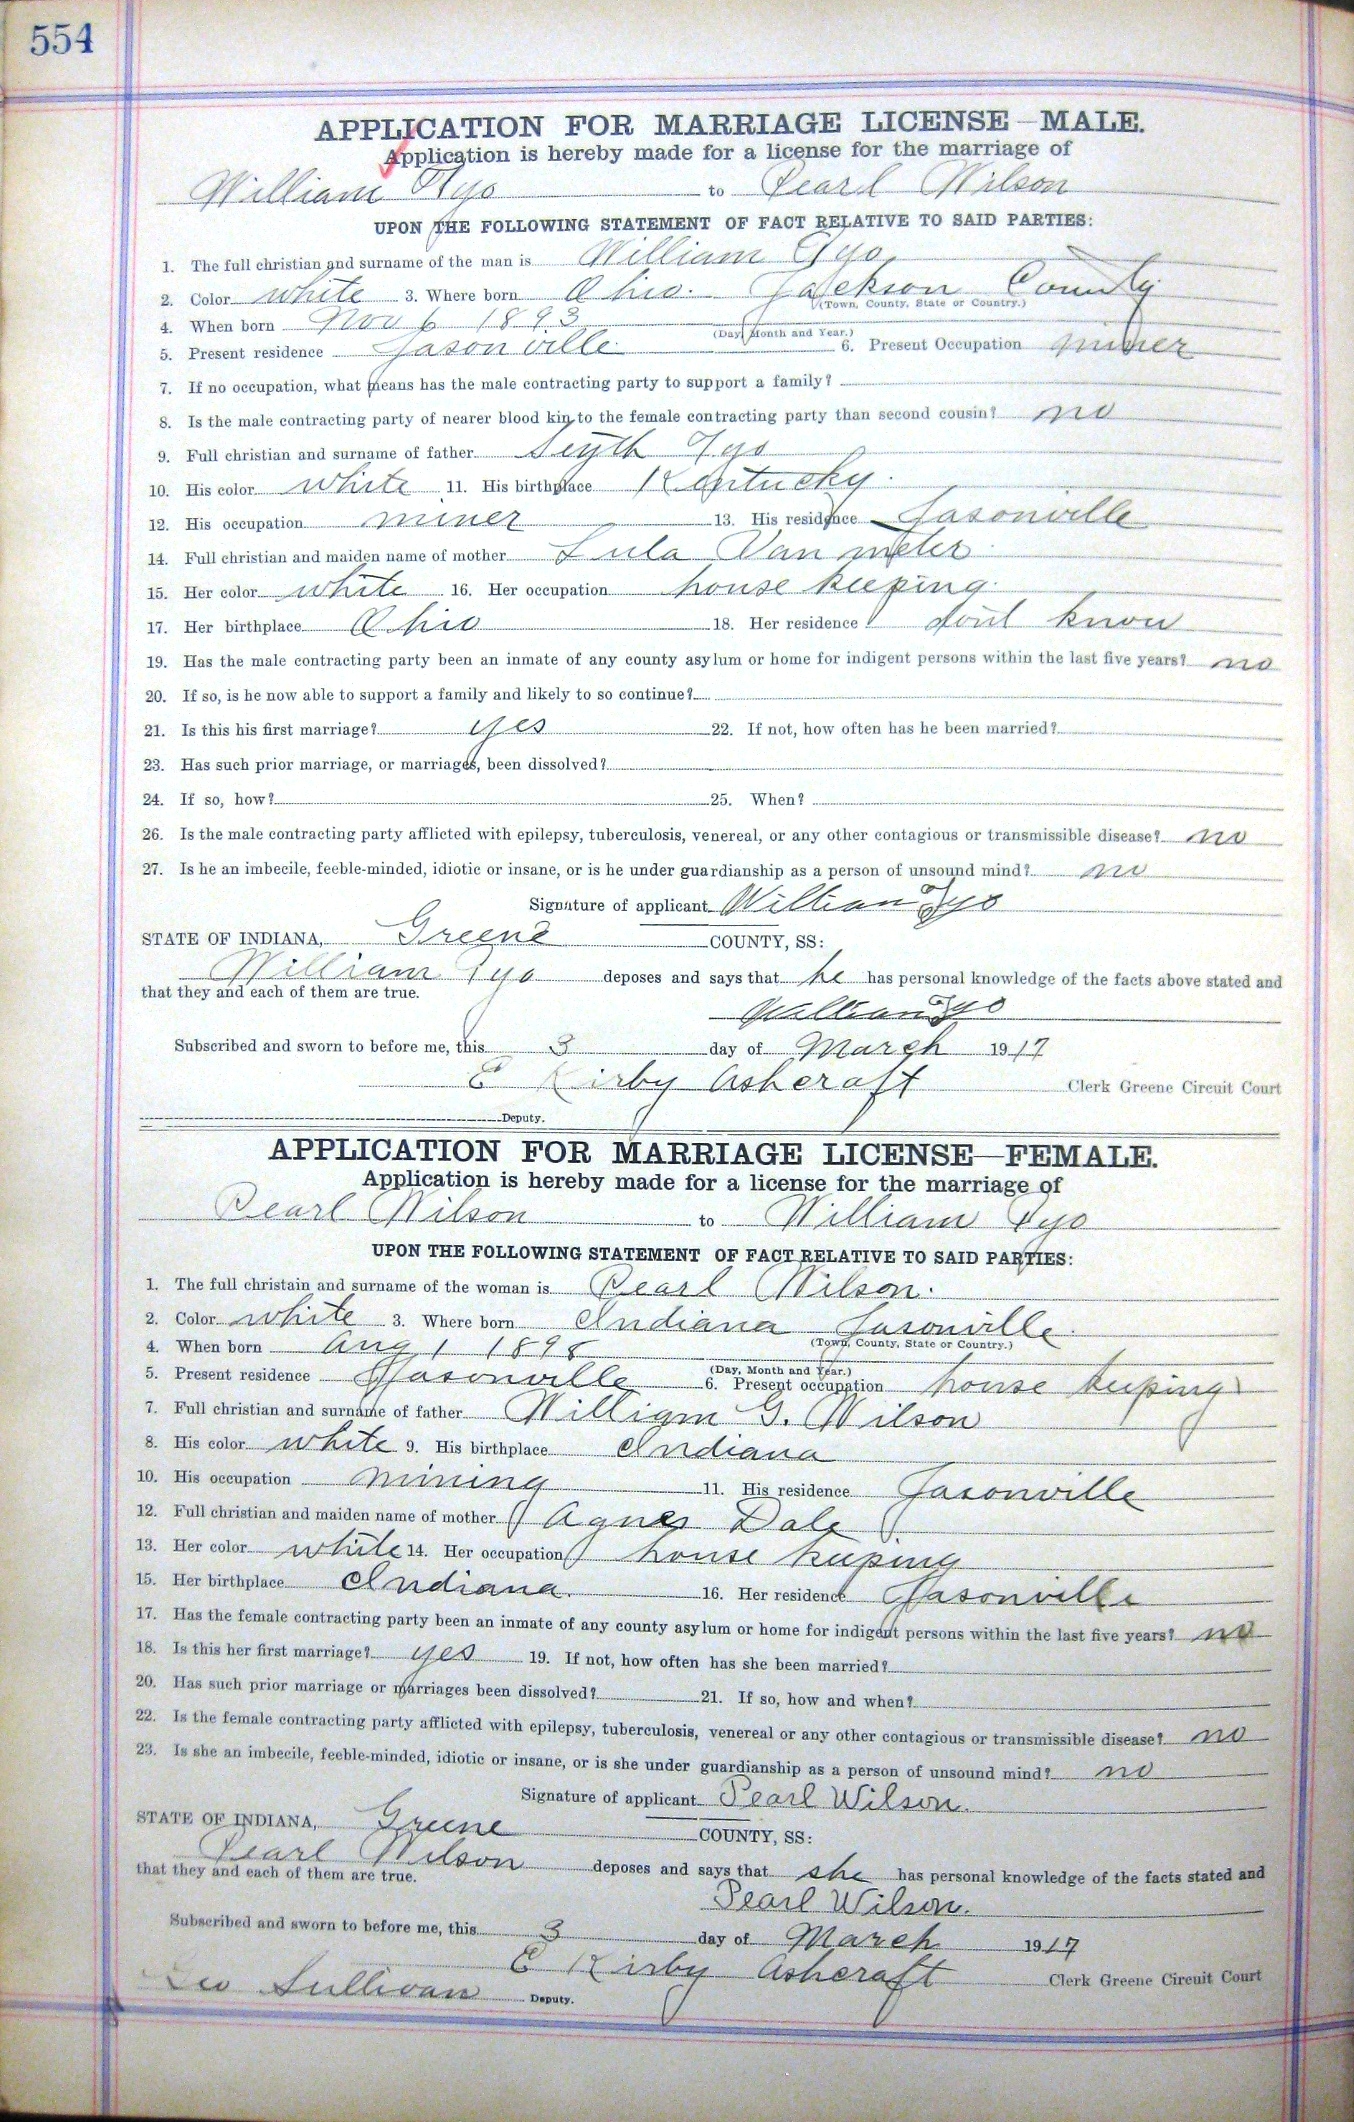 554
APPLICATION FOR MARRIAGE LICENSE—MALE.
Application is hereby made for a license for the marriage of
William Tyo to Pearl Wilson
UPON THE FOLLOWING STATEMENT OF FACT RELATIVE TO SAID PARTIES:
1. The full christian and surname of the man is William Tyo
2. Color white 3. Where born Ohio. Jackson County
(Town, County, State or Country.)
4. When born Nov 6 1893
(Day, Month and Year.)
5. Present residence Jasonville 6. Present Occupation miner
7. If no occupation, what means has the male contracting party to support a family?
8. Is the male contracting party of nearer blood kin to the female contracting party than second cousin? no
9. Full christian and surname of father Tyo
10. His color white 11. His birthplace Kentucky.
12. His occupation miner 13. His residence Jasonville
14. Full christian and maiden name of mother Lula Van meter
15. Her color white 16. Her occupation house keeping.
17. Her birthplace Ohio 18. Her residence dont know
19. Has the male contracting party been an inmate of any county asylum or home for indigent persons within the last five years? no
20. If so, is he now able to support a family and likely to so continue?
21. Is this his first marriage? yes 22. If not, how often has he been married?
23. Has such prior marriage, or marriages, been dissolved?
24. If so, how? 25. When?
26. Is the male contracting party afflicted with epilepsy, tuberculosis, venereal, or any other contagious or transmissible disease? no
27. Is he an imbecile, feeble-minded, idiotic or insane, or is he under guardianship as a person of unsound mind? no
Signature of applicant William Tyo
STATE OF INDIANA, Greene COUNTY, SS:
William Tyo deposes and says that he has personal knowledge of the facts above stated and
that they and each of them are true.
William Tyo
Subscribed and sworn to before me, this 3 day of March 1917
E Kirby Ashcraft Clerk Greene Circuit Court
Deputy.
APPLICATION FOR MARRIAGE LICENSE—FEMALE.
Application is hereby made for a license for the marriage of
Pearl Wilson to William Tyo
UPON THE FOLLOWING STATEMENT OF FACT RELATIVE TO SAID PARTIES:
1. The full christain and surname of the woman is Pearl Wilson.
2. Color white 3. Where born Indiana Jasonville.
(Town, County, State or Country.)
4. When born Aug 1 1898
(Day, Month and Year.)
5. Present residence Jasonville 6. Present occupation house keeping
7. Full christian and surname of father William G. Wilson
8. His color white 9. His birthplace Indiana
10. His occupation mining 11. His residence Jasonville
12. Full christian and maiden name of mother Agnes Dale
13. Her color white 14. Her occupation house keeping
15. Her birthplace Indiana. 16. Her residence Jasonville
17. Has the female contracting party been an inmate of any county asylum or home for indigent persons within the last five years? no
18. Is this her first marriage? yes 19. If not, how often has she been married?
20. Has such prior marriage or marriages been dissolved? 21. If so, how and when?
22. Is the female contracting party afflicted with epilepsy, tuberculosis, venereal or any other contagious or transmissible disease? no
23. Is she an imbecile, feeble-minded, idiotic or insane, or is she under guardianship as a person of unsound mind? no
Signature of applicant Pearl Wilson.
STATE OF INDIANA, Greene COUNTY, SS:
Pearl Wilson deposes and says that she has personal knowledge of the facts stated and
that they and each of them are true.
Pearl Wilson.
Subscribed and sworn to before me, this 3 day of March 1917
E Kirby Ashcraft Clerk Greene Circuit Court
Sullivan Deputy.